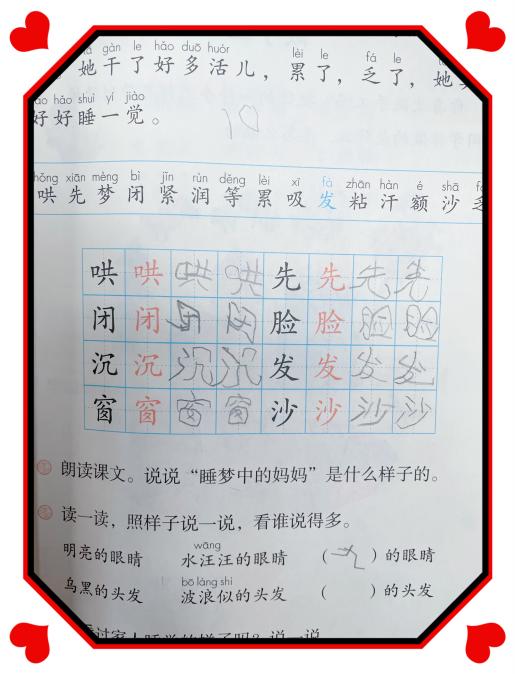 gàn le hǎo duō huór lèi le fá le
她干了好多活儿，累了，乏了，她
hǎo hǎo shuì yí jiào
好好睡一觉。
10
hǒng xiān mèng bì jǐn rùn děng lèi xī fà zhān hàn é shā fá
哄先梦闭紧润等累吸发粘汗额沙乏
哄哄哄哄先先先先
闭闭闭闭脸脸脸脸
沉沉沉沉发发发发
窗窗窗窗沙沙沙沙
朗读课文。说说“睡梦中的妈妈”是什么样子的。
读一读，照样子说一说，看谁说得多。
wāng
明亮的眼睛 水汪汪的眼睛 （ ）的眼睛
bō làng shì
乌黑的头发 波浪似的头发 （ ）的头发